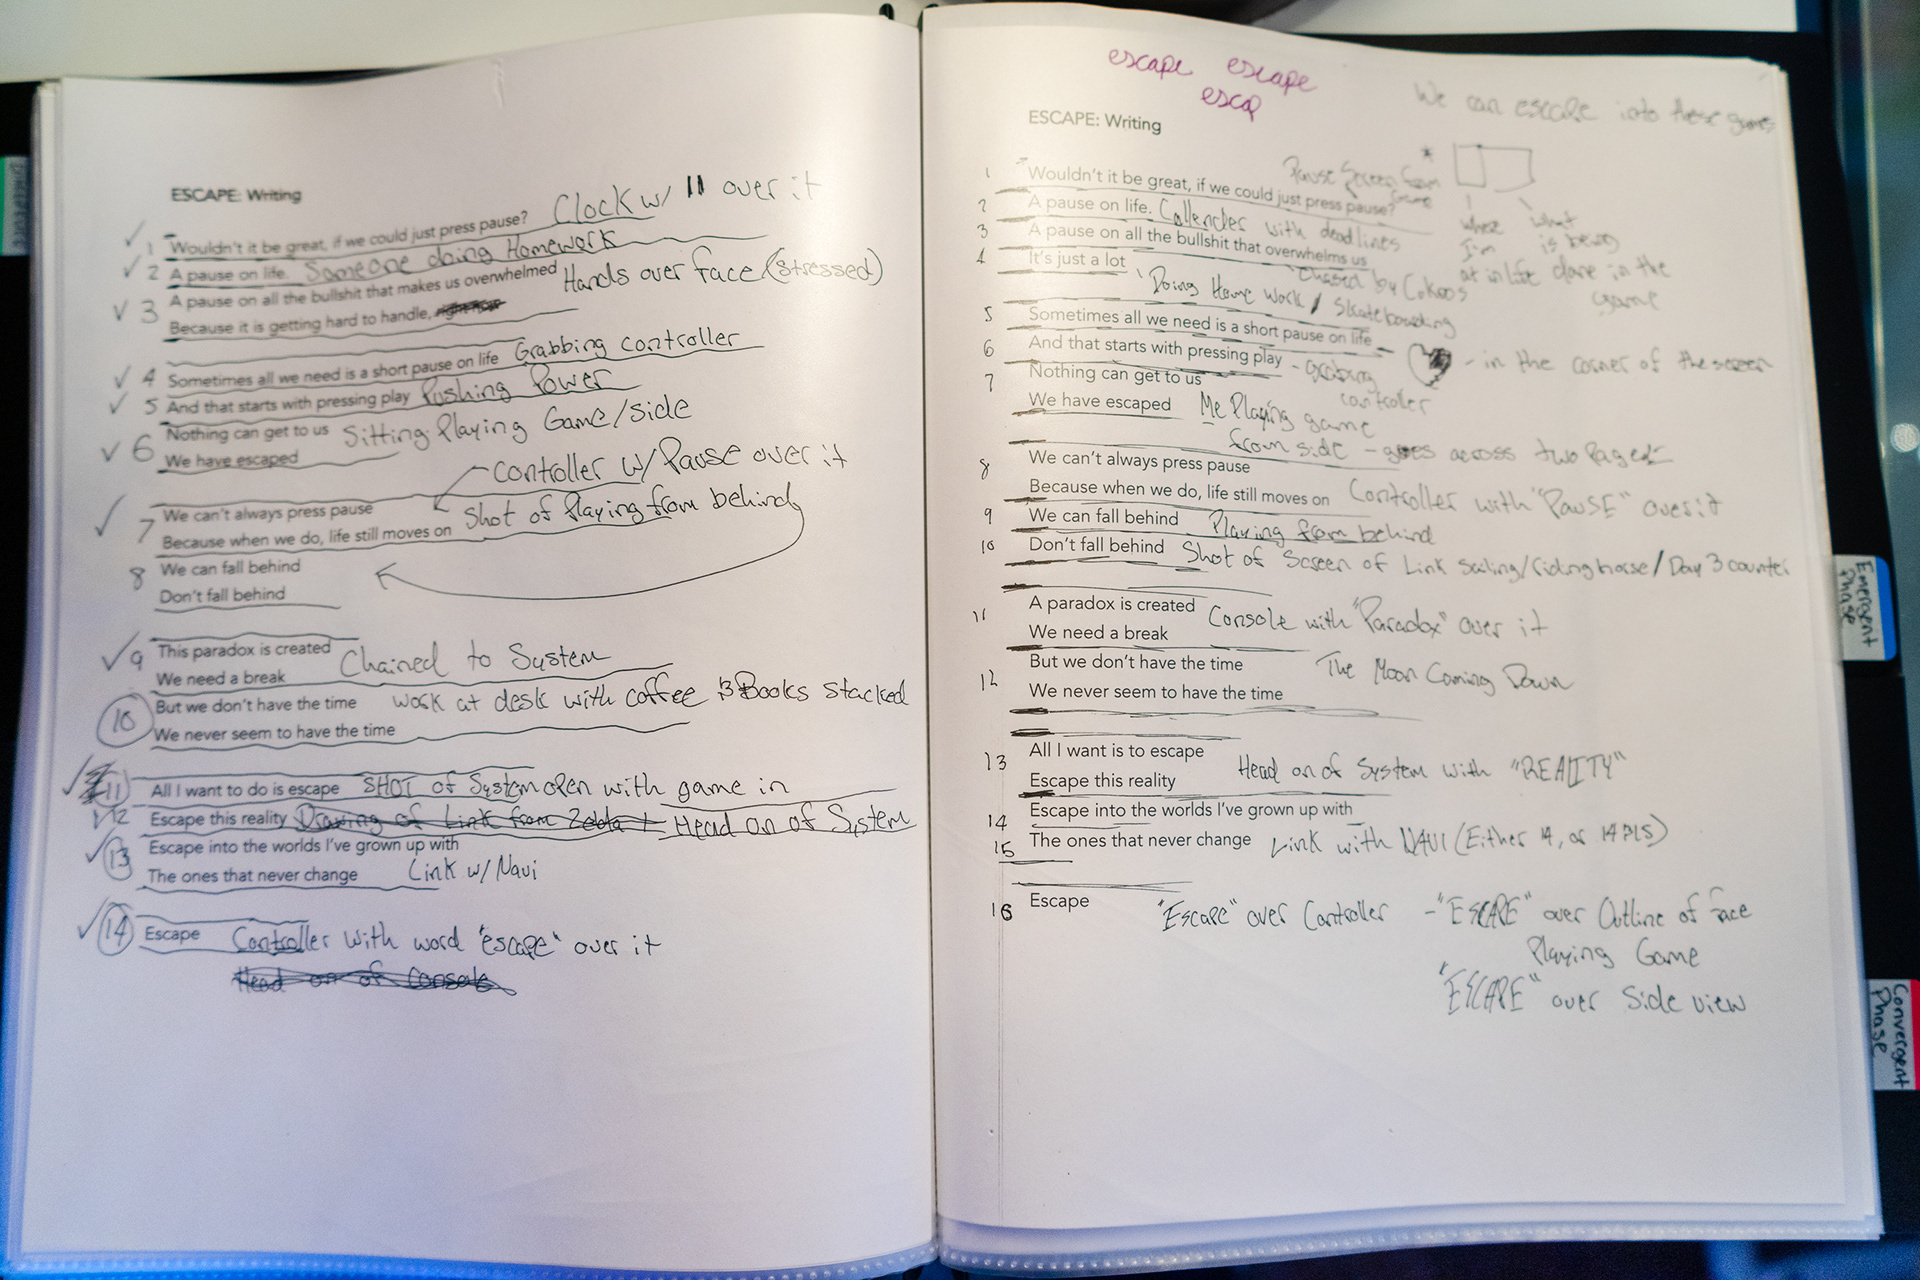 ESCAPE: Writing
Clock w/ 11 over it
1 Wouldn't it be great, if we could just press pause?
2 A pause on life. Someone doing Homework
3 A pause on all the bullshit that makes us overwhelmed Hands over face (stressed)
Because it is getting hard to handle,
4 Sometimes all we need is a short pause on life Grabbing controller
5 And that starts with pressing play Pushing Power
6 Nothing can get to us Sitting Playing Game/side
We have escaped
controller w/ Pause over it
7 We can't always press pause
Because when we do, life still moves on Shot of Playing from behind
8 We can fall behind
Don't fall behind
9 This paradox is created Chained to System
We need a break
10 But we don't have the time work at desk with coffee Books stacked
We never seem to have the time
11 All I want to do is escape SHOT of System open with game in
12 Escape this reality Drawing of Link from Zelda Head on of System
13 Escape into the worlds I've grown up with
The ones that never change Link w/ Navi
14 Escape Controller with word "escape" over it
Head on of Console
escape escape
escap
We can escape into these games
ESCAPE: Writing
Pause Screen from Game
1 Wouldn't it be great, if we could just press pause?
2 A pause on life. with deadlines
3 A pause on all the bullshit that overwhelms us
4 It's just a lot
Chased by
Doing Home work / Skateboarding
where I'm at in life
what is being done in the game
5 Sometimes all we need is a short pause on life
6 And that starts with pressing play - grabbing controller
- in the corner of the screen
7 Nothing can get to us
We have escaped Me Playing game
from side - goes across two Pages
8 We can't always press pause
Because when we do, life still moves on Controller with "PAUSE" over it
9 We can fall behind Playing from behind
10 Don't fall behind Shot of Screen of Link Sailing/riding horse/Day 3 counter
11 A paradox is created Console with "Paradox" over it
We need a break
12 But we don't have the time The Moon Coming Down
We never seem to have the time
13 All I want is to escape
Escape this reality Head on of System with "REALITY"
14 Escape into the worlds I've grown up with
15 The ones that never change Link with NAVI (Either 14, or 14 PLS)
16 Escape "Escape" over Controller - "ESCAPE" over Outline of face
Playing Game
"ESCAPE" over Side view
Emergent Phase
Convergent Phase